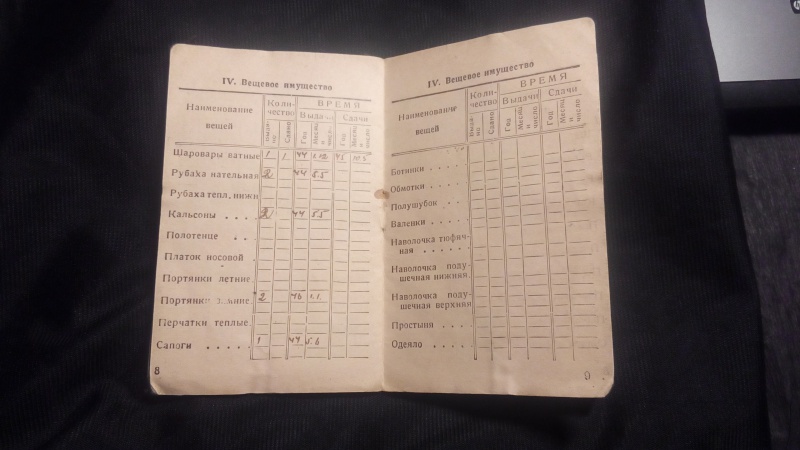 IV. Вещевое имущество
Наименование вещей
Количество
ВРЕМЯ
Выдачи
Сдачи
Выдано
Сдано
Год
Месяц и число
Год
Месяц и число
Шаровары ватные 1 1 44 45
Рубаха нательная 2 44 5.5
Рубаха тепл. нижн
Кальсоны . . . . 2 44 5.5
Полотенце . .
Платок носовой .
Портянки летние.
Портянки зимние. 2 46 1.1.
Перчатки теплые
Сапоги . . . . . 1 44 5.6
8
IV. Вещевое имущество
Наименование
вещей
Коли-
чество
ВРЕМЯ
Выдачи
Сдачи
Выда-
но
Сдано
Год
Месяц
и
число
Год
Месяц
и
число
Ботинки . . . .
Обмотки . . . .
Полушубок . .
Валенки . . . .
Наволочка тюфяч-
ная . . . . .
Наволочка поду-
шечная нижняя
Наволочка поду-
шечная верхняя
Простыня . . . .
Одеяло . . . . .
9